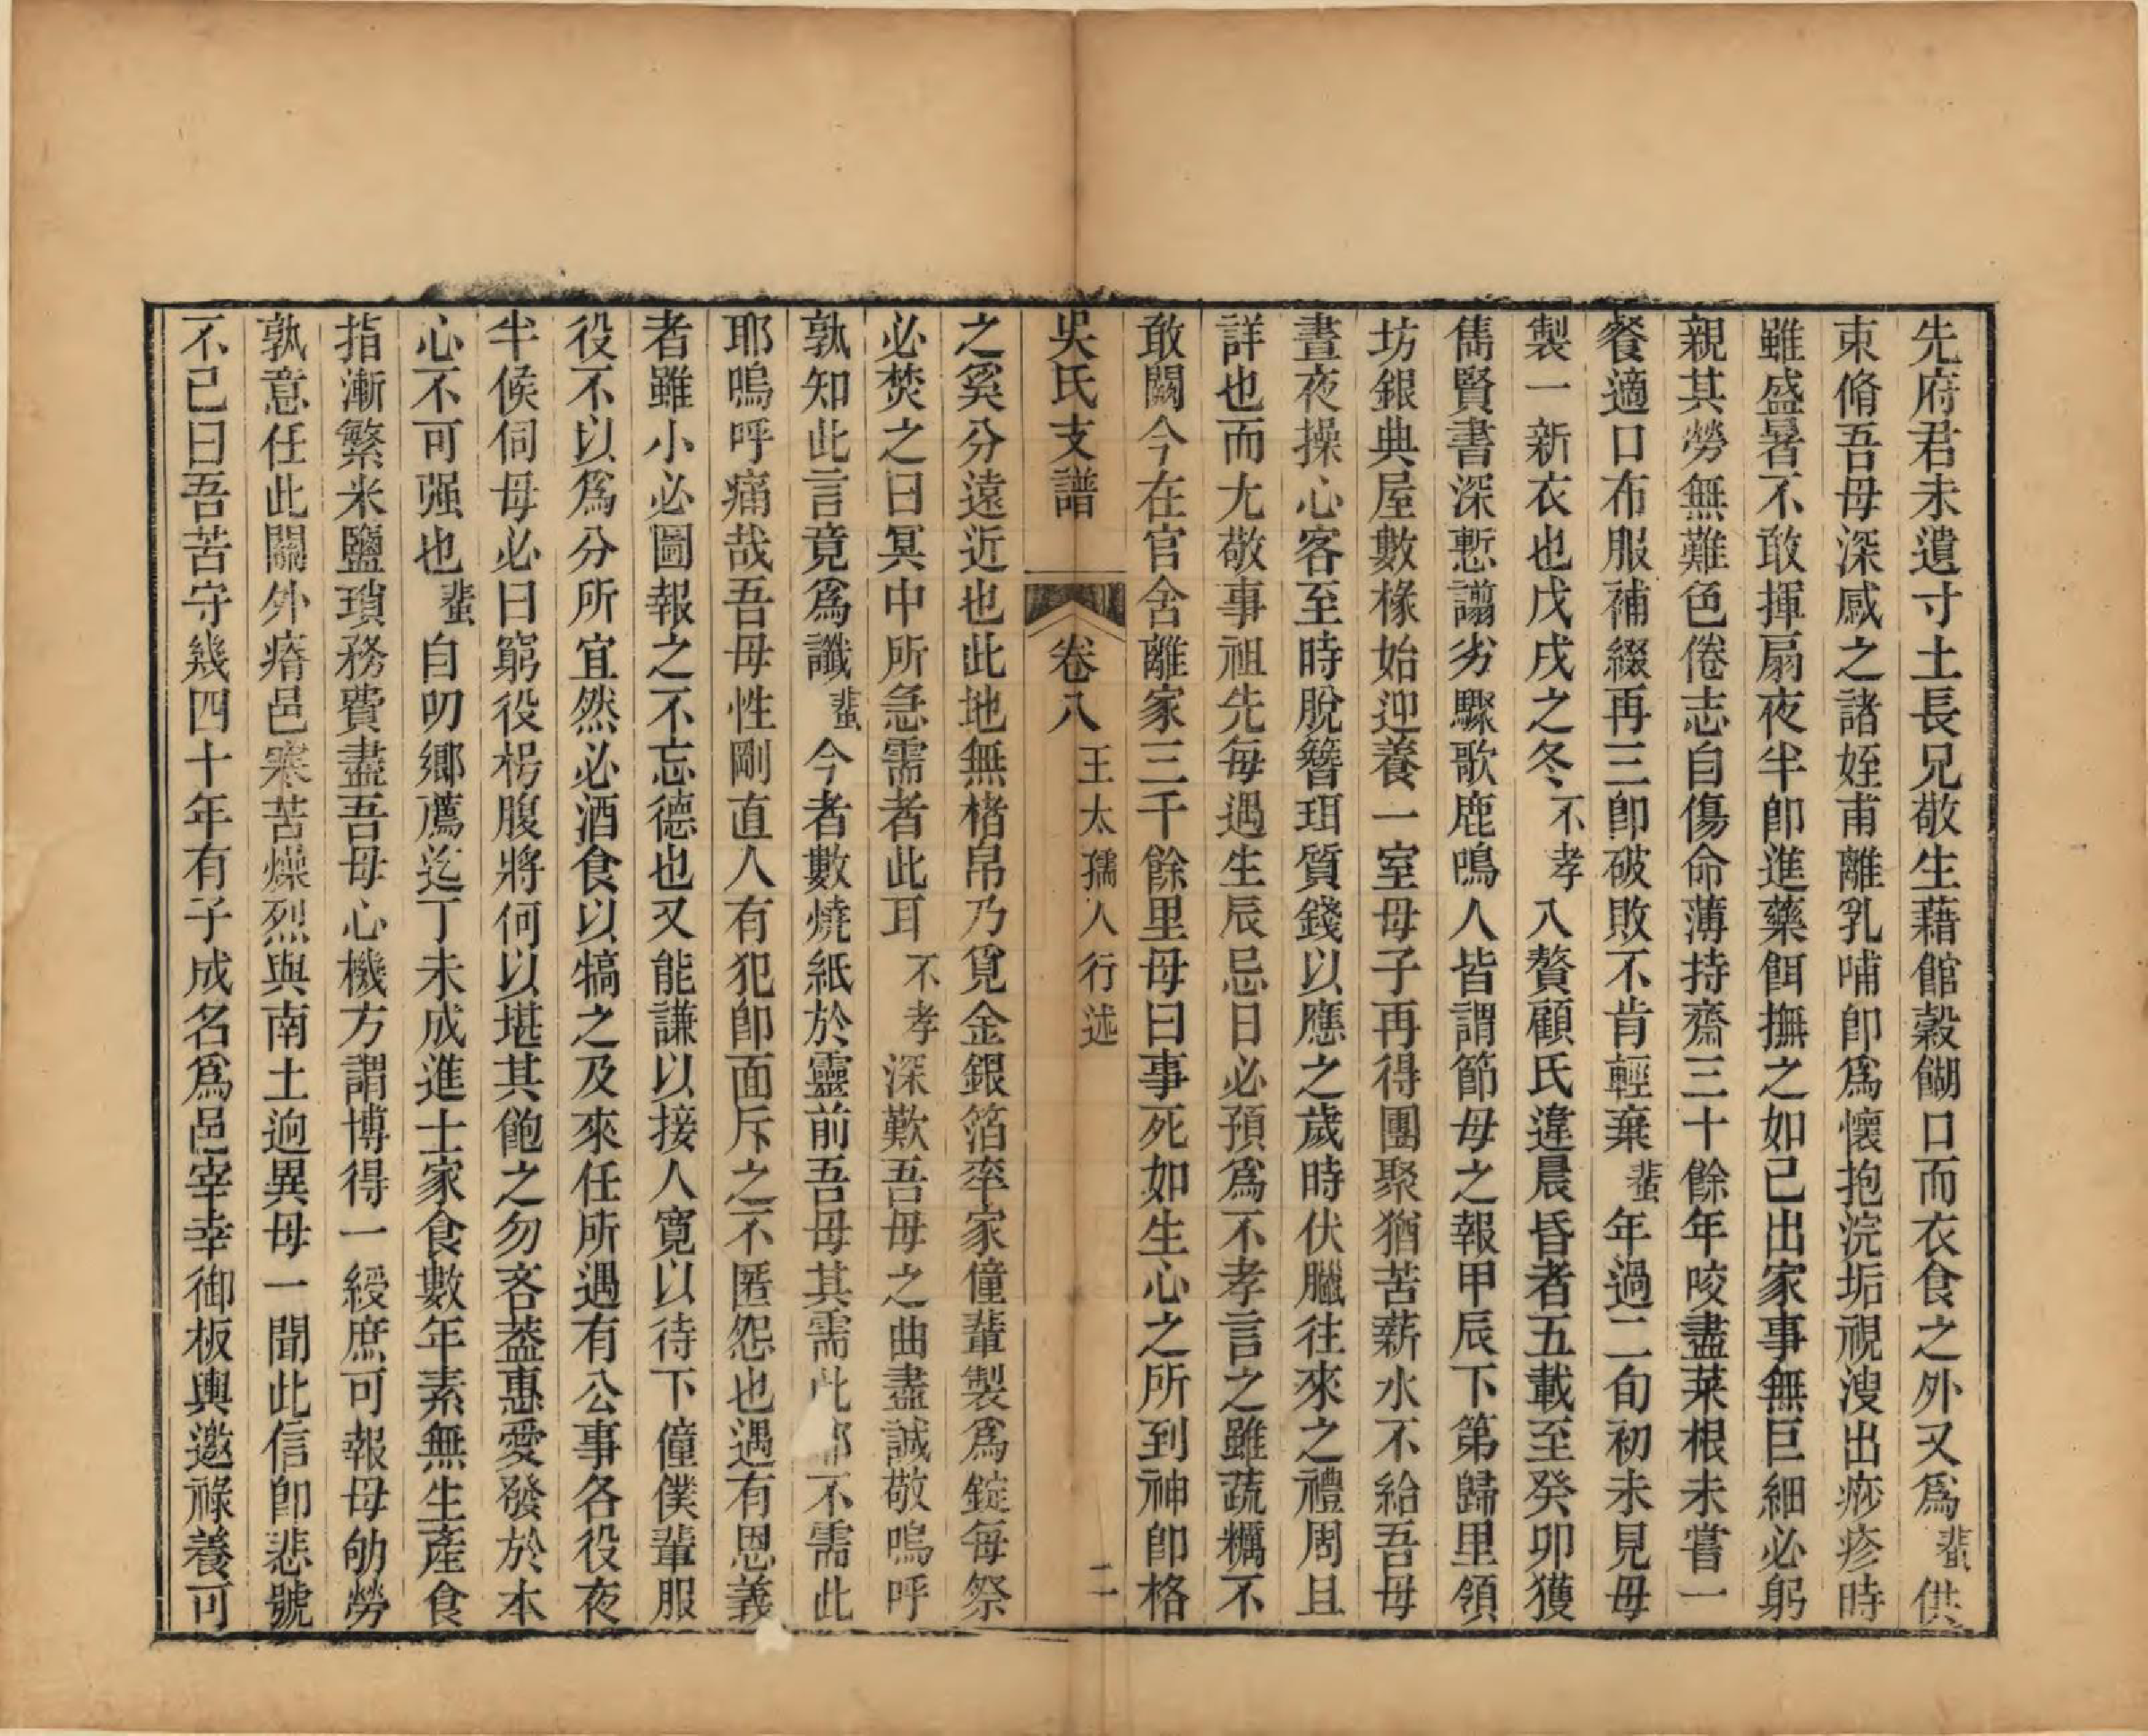 先府君未遺寸土長兄敬生藉館穀餬口而衣食之外又爲蜚供
束脩吾母深感之諸姪甫離乳哺卽爲懷抱浣垢視溲出痧疹時
雖盛暑不敢揮扇夜半卽進藥餌撫之如己出家事無巨細必躬
親其勞無難色倦志自傷命薄持齋三十餘年咬盡菜根未嘗一
餐適口布服補綴再三卽破敗不肯輕棄蜚年過二旬初未見母
製一新衣也戊戌之冬不孝入贅顧氏違晨昏者五載至癸卯獲
雋賢書深慙譾劣驟歌鹿鳴人皆謂節母之報甲辰下第歸里領
坊銀典屋數椽始迎養一室母子再得團聚猶苦薪水不給吾母
晝夜操心客至時脫簪珥質錢以應之歲時伏臘往來之禮周且
詳也而尤敬事祖先每遇生辰忌日必預爲不孝言之雖蔬糲不
敢闕今在官舍離家三千餘里母曰事死如生心之所到神卽格
吳氏支譜 卷八 王太孺人行述 二
之奚分遠近也此地無楮帛乃覓金銀箔率家僮輩製爲錠每祭
必焚之曰冥中所急需者此耳不孝深歎吾母之曲盡誠敬嗚呼
孰知此言竟爲讖蜚今者數燒紙於靈前吾母其需此耶不需此
耶嗚呼痛哉吾母性剛直人有犯卽面斥之不匿怨也遇有恩義
者雖小必圖報之不忘德也又能謙以接人寬以待下僮僕輩服
役不以爲分所宜然必酒食以犒之及來任所遇有公事各役夜
半候伺母必曰窮役枵腹將何以堪其飽之勿吝葢惠愛發於本
心不可强也蜚自叨鄉薦迄丁未成進士家食數年素無生產食
指漸繁米鹽瑣務費盡吾母心機方謂博得一綬庶可報母劬勞
孰意任此關外瘠邑寒苦燥烈與南土逈異母一聞此信卽悲號
不已曰吾苦守幾四十年有子成名爲邑宰幸御板輿邀祿養可